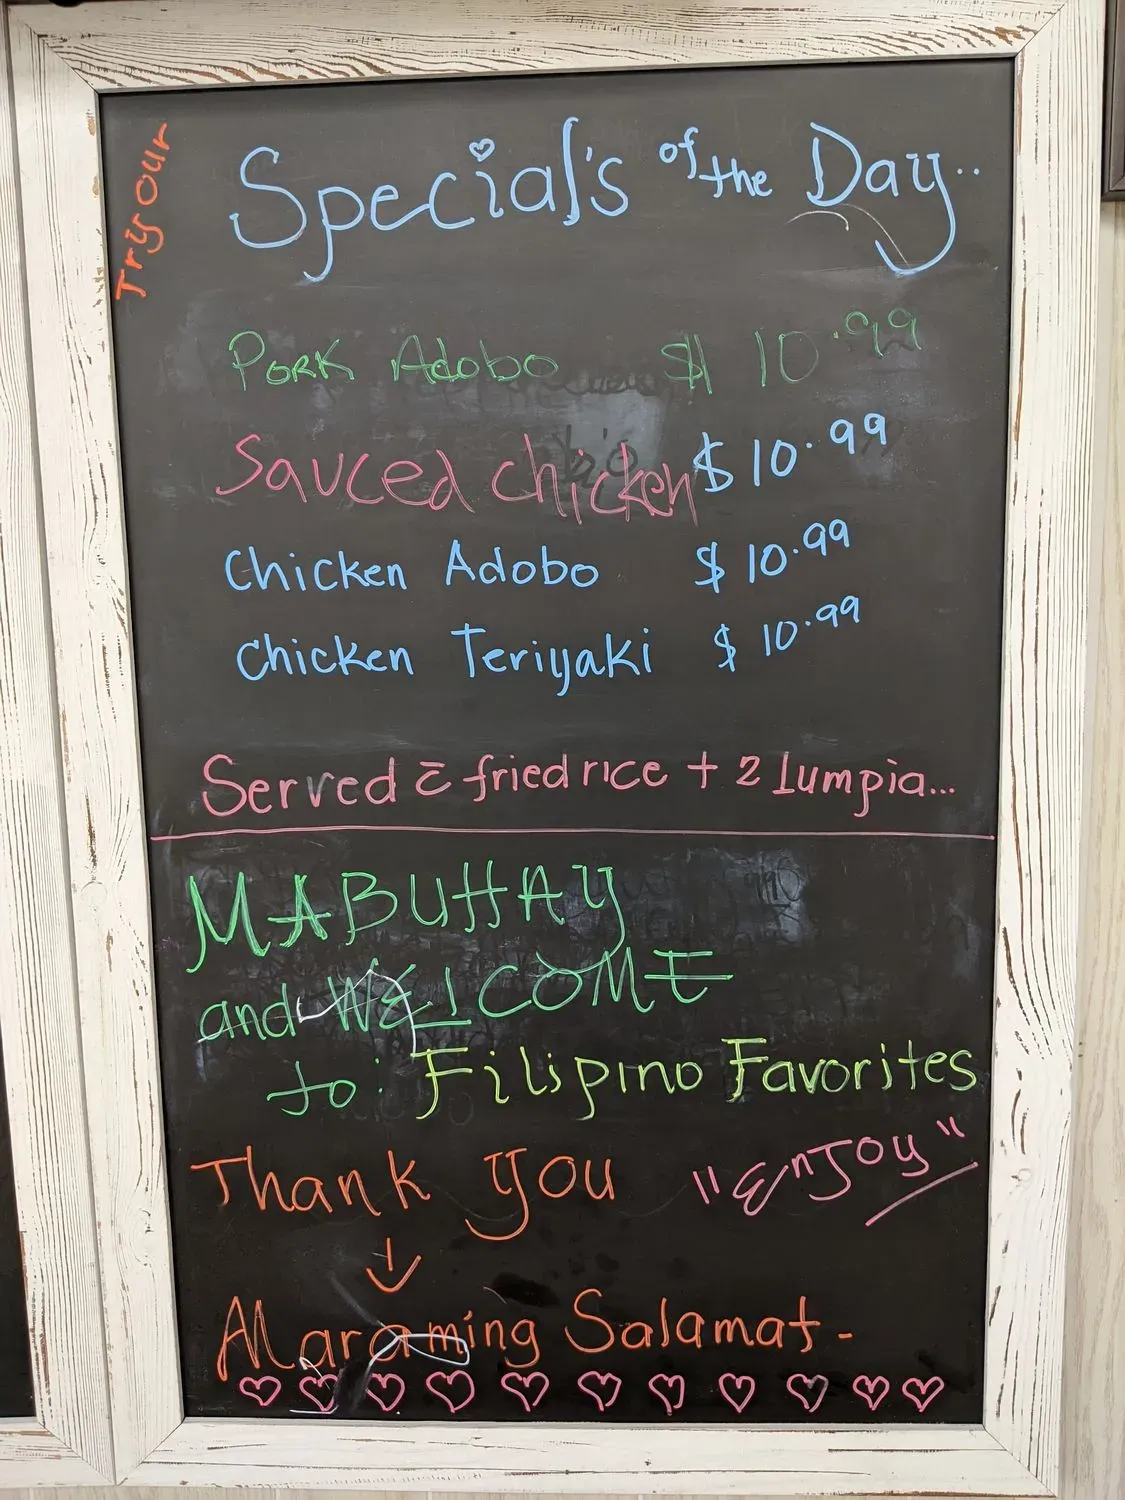 Try our
Special's of the Day..
Pork Adobo $10.99
Sauced chicken $10.99
Chicken Adobo $10.99
Chicken Teriyaki $10.99
Served c̄ fried rice + 2 lumpia...
MABUHAY
and WELCOME
to: Filipino Favorites
Thank you "Enjoy"
Maraming Salamat-